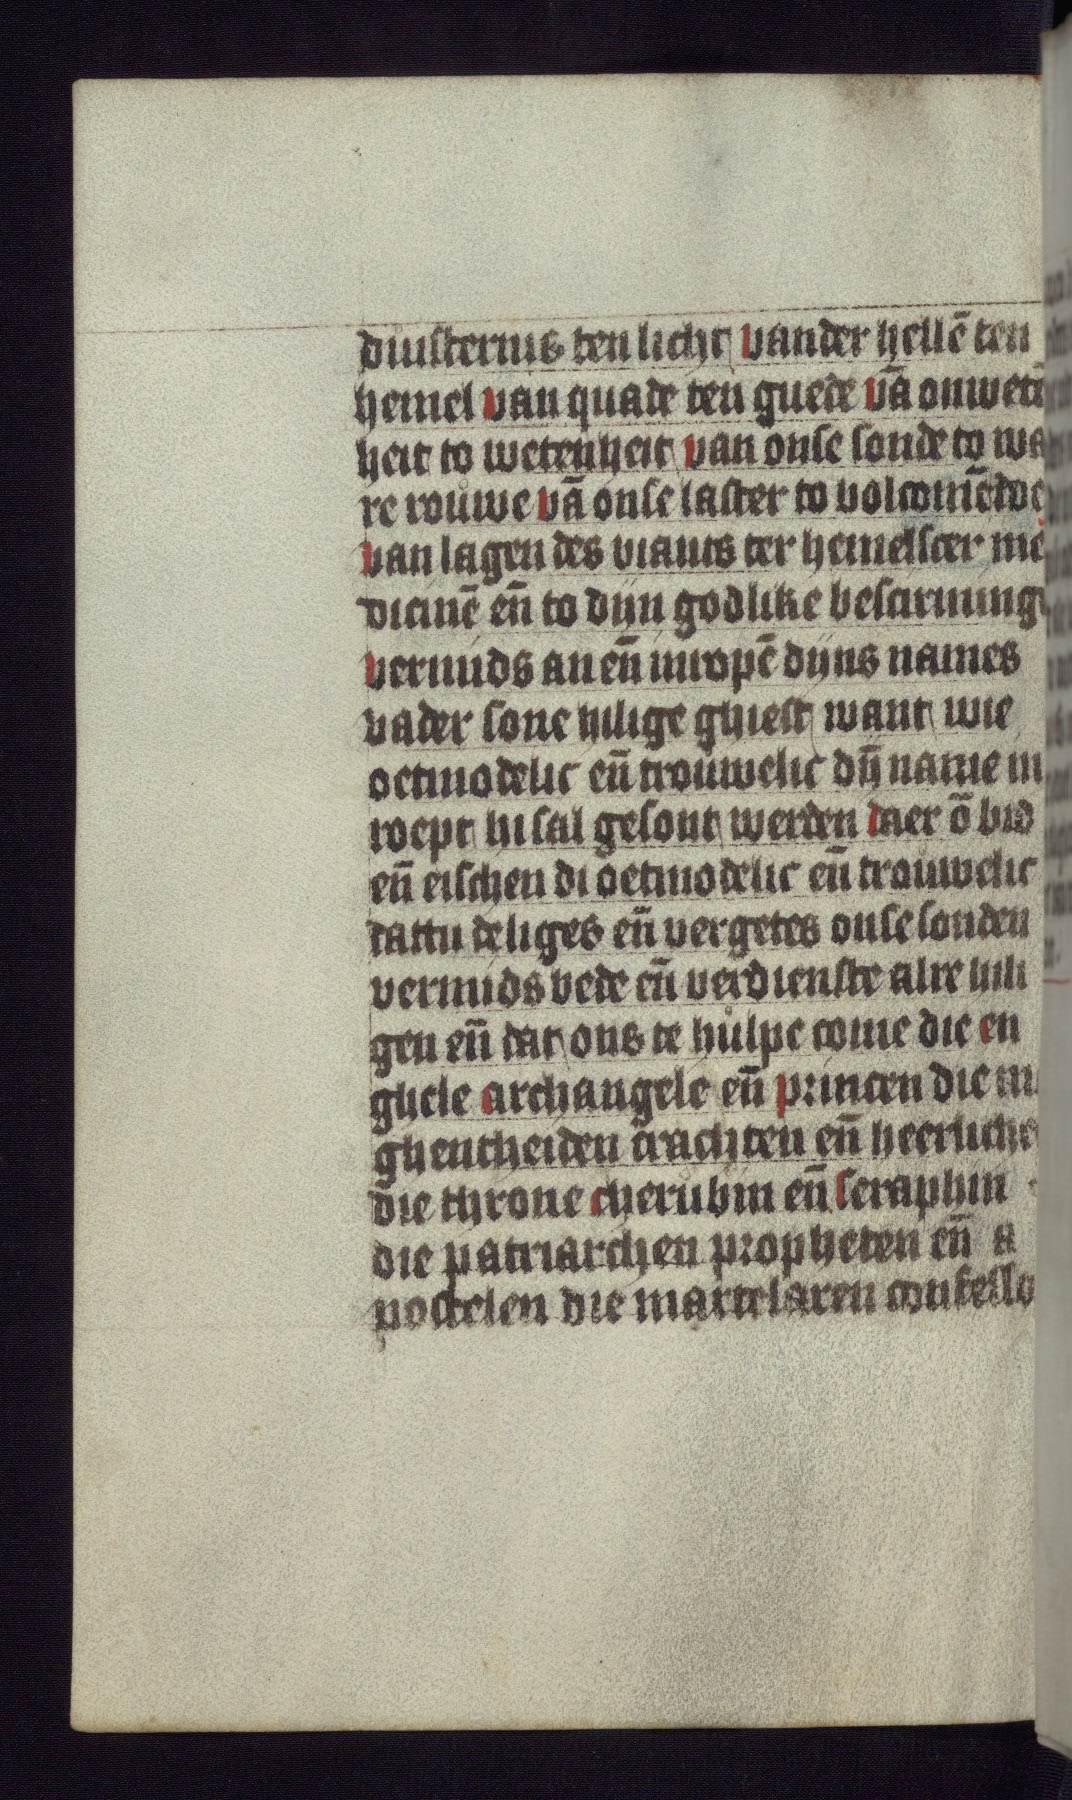 duusternis ten licht vander hellē ten
hemel van quade ten guede vā onwetē
heit to wetenheit van onse sonde to wa
re rouwe vā onse laster to volcomē
van lagen des viants ter hemelscer me
dicinē eñ to dijn godlike bescirminge
vermids an eñ inropē dijns names
vader sone hilige ghiest want wie
oetmodelic eñ trouwelic dijn name in
roept hi sal gesont werden daer ō bid
eñ eischen di oetmodelic eñ trouwelic
tattu deliges eñ vergetes onse sonden
vermids bede eñ verdienste alre hili
gen eñ dat ons te hulpe come die en
ghele archangele eñ princen die mu
ghentheiden crachten eñ heerliche
die throne cherubin eñ seraphin
die patriarchen propheten eñ a
postelen die martelaren confesso